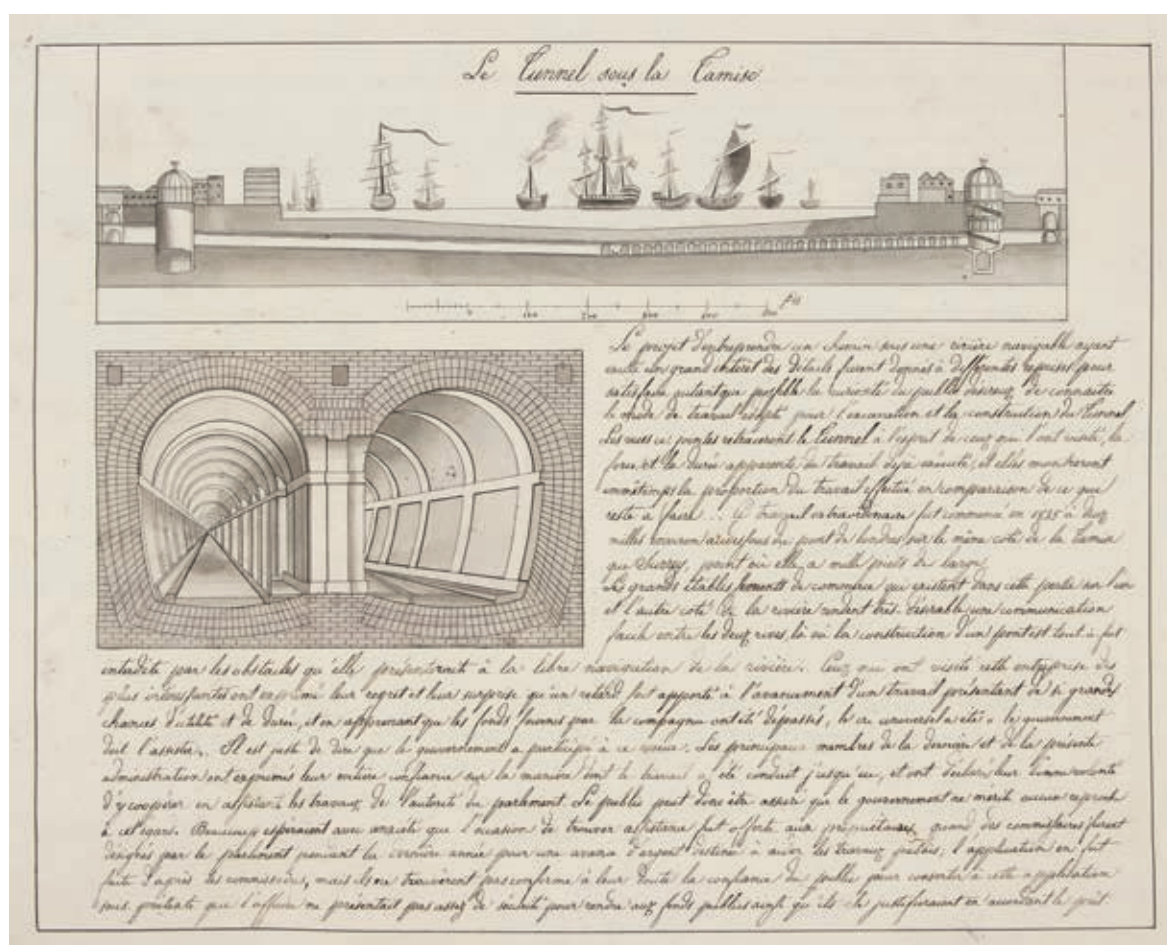 Le Tunnel sous la Tamise
100 200 300 400 500 Pds
Le projet d'entreprendre un chemin sous une rivière navigable ayant
excité un grand intérêt des détails furent donnés à différentes reprises pour
satisfaire autant que possible la curiosité du public désireux de connaitre
le mode de travail adopté pour l'excavation et la construction du Tunnel
Les vues ci jointes retraceront le Tunnel à l'esprit de ceux qui l'ont visité, la
force et la durée apparente du travail déjà exécuté, et elles montreront
en même temps la proportion du travail effectué en comparaison de ce qui
reste à faire... Ce travail extraordinaire fut commencé en 1825 à deux
milles environ au dessous du pont de Londres sur le même coté de la Tamise
que Surrey, point où elle a mille pieds de large.
Les grands établissements de commerce qui existent dans cette partie sur l'un
et l'autre coté de la rivière rendent très-desirable une communication
facile entre les deux rives, là où la construction d'un pont est tout à fait
interdite par les obstacles qu'elle présenterait à la libre navigation de la rivière. Ceux qui ont visité cette entreprise des
plus intéressantes ont exprimé leur regret et leur surprise qu'un retard fut apporté à l'avancement d'un travail présentant de si grandes
chances d'utilité et de durée, et en apprenant que les fonds fournis par la compagnie ont été dépassés, le cri universel a été « le gouvernement
doit l'assister ». Il est juste de dire que le gouvernement a participé à ce voeu. Les principaux membres de la dernière et de la présente
administration ont exprimé leur entière confiance sur la manière dont le travail a été conduit jusqu'ici, et ont déclaré leur volonté
d'y coopérer en assistant les travaux de l'autorité du parlement. Le public peut donc être assuré que le gouvernement ne mérite aucun reproche
à cet égard. Beaucoup espéraient avec anxiété que l'occasion de trouver assistance fut offerte aux propriétaires, quand des commissaires furent
désignés par le parlement pendant la dernière année pour une avance d'argent destinée à aider les travaux publics; l'application en fut
faite d'après les commissaires, mais ils ne trouvèrent pas conforme à leur la confiance du public pour consentir à cette application
sous prétexte que l'affaire ne présentait pas assez de sécurité pour rendre aux fonds publics ainsi qu'ils le justifieraient en accordant le prêt.